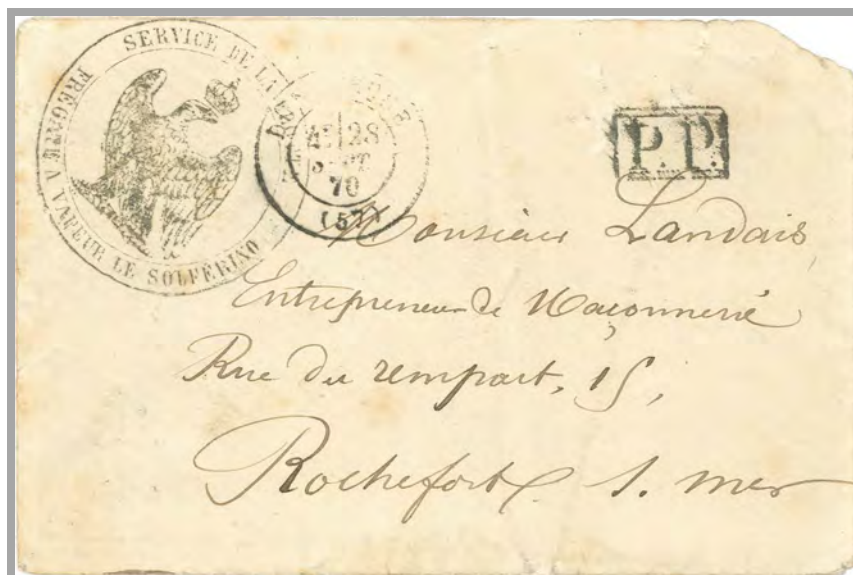 SERVICE DE LA
FREGATE A VAPEUR LE SOLFÉRINO
28
70
(57)
P.P.
Monsieur Landais
Entrepreneur de Maçonnerie
Rue du rempart, 15,
Rochefort s. mer